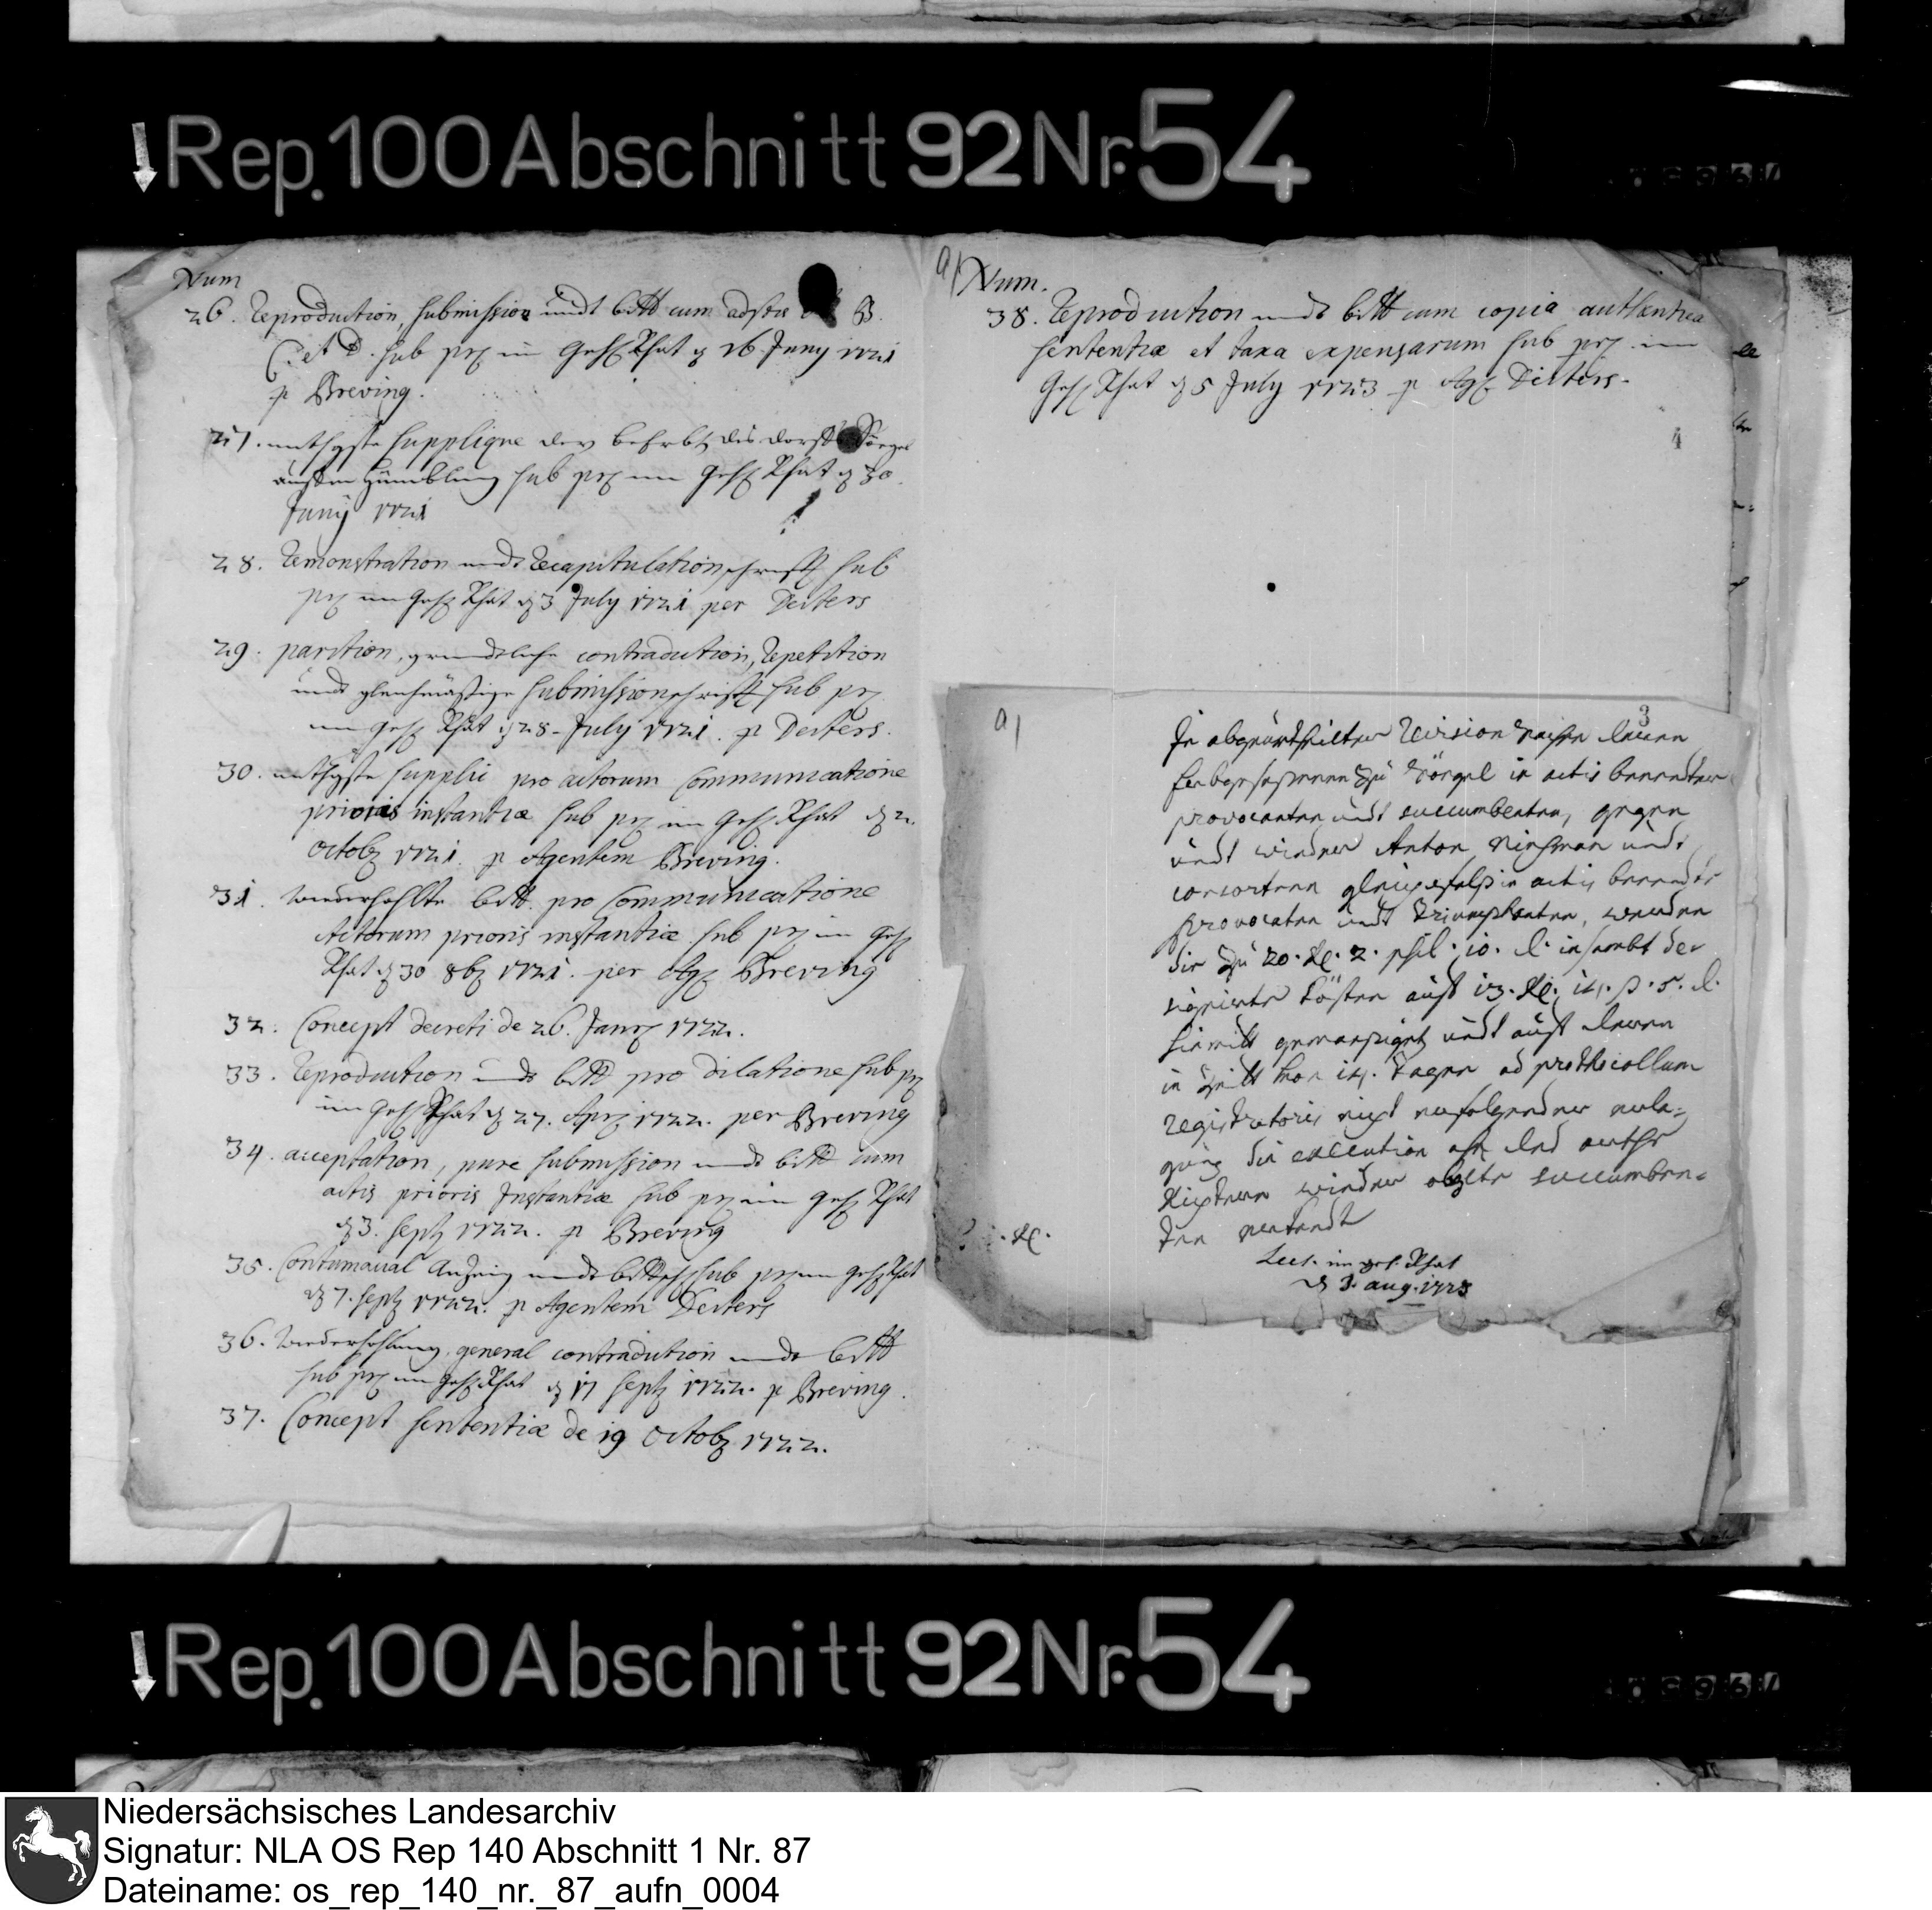 Rep. 100 Abschnitt 92 Nr. 54
Num
26. Reproduction, submission undt bitt cum adjtis B.
C. et D. sub prs im Gehh Rhat d 26 Juny 1721
p Breving.
27. supplique der des dorffs Sögel
sub prs im Gehh Rhat d 30.
Juny 1721
28. Remonstration undt Recapitulationschrifft sub
prs im Gehh Rhat d 3 July 1721 per Deiters
29. parition, grundtliche contradiction, Repetition
undt gleichmässige submissionschrifft sub prs
im Gehh Rhat d 28 July 1721. p Deiters.
30. supplic pro actorum Communicatione
prioris instantiæ sub prs im Gehh Rhat d 2.
Octob 1721. p Agentem Breving.
31. wiederhohlte bitt pro Communicatione
Actorum prioris instantiæ sub prs im Gehh
Rhat d 30 8b 1721. per Ag Breving
32. Concept decreti de 26. Jan 1722.
33. Reproduction undt bitt pro dilatione sub prs
im Gehh Rhat d 27. Apr 1722. per Breving
34. acceptation, pure submission undt bitt cum
actis prioris Instantiæ sub prs im Gehh Rhat
d 3. sept 1722. p Breving
35. Contumacial Anzeig undt sub prs im Gehh Rhat
d 7. sept 1722. p Agentem Deiters
36. wiederhohlung, general contradiction undt bitt
sub prs im Gehh Rhat d 17 sept 1722. p Breving.
37. Concept sententiæ de 19 Octob 1722.
a)
Num.
38. Reproduction undt bitt cum copia authentica
sententiæ et taxa expensarum sub prs im
Gehh Rhat d 5 July 1723 p Ag Deiters.
4
a)
3
In abgeurtheilter Revision sachen deren
zu Sögel in actis benendten
provocanten undt succumbenten, gegen
undt wieder Anton undt
consorten gleichfalß in actis benendte
provocaten undt triumphanten, werden
die zu 20. 2. 10. d. insambt der
Kösten auff 13. 14. ß. 5. d.
hiemitt gemaessiget undt auff deren
in Zeitt von 14. tagen ad prothocollum
registratoris nicht erfolgender erla=
gung die execution
Richtern wieder succumben=
ten
Lect. im geh. Rhat
d 3. aug. 1723
Rep. 100 Abschnitt 92 Nr. 54
Niedersächsisches Landesarchiv
Signatur: NLA OS Rep 140 Abschnitt 1 Nr. 87
Dateiname: os_rep_140_nr._87_aufn_0004